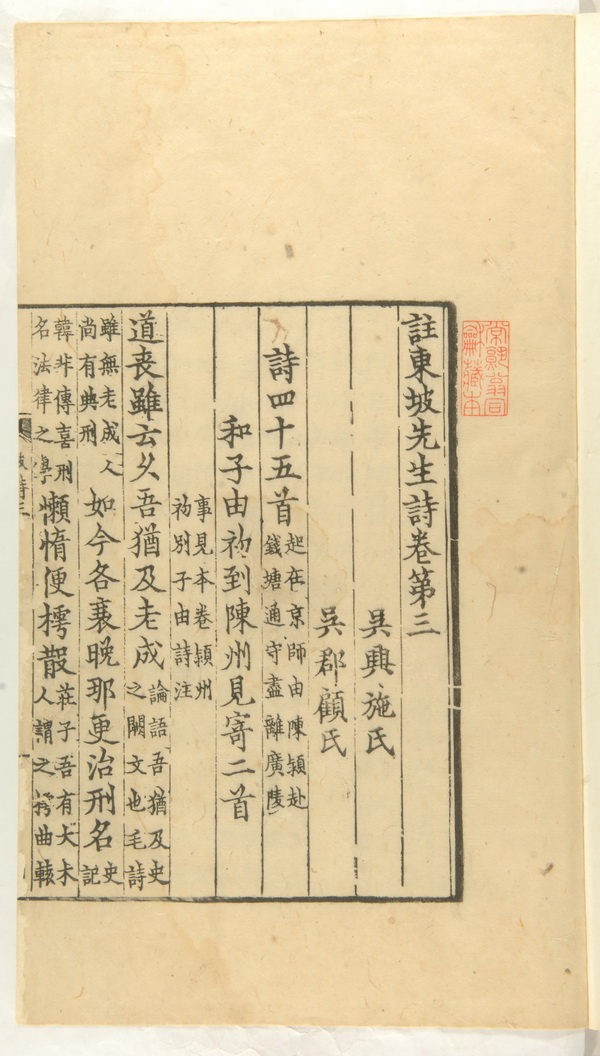 常熟翁同
龢藏本
註東坡先生詩卷第三
吳興施氏
吳郡顧氏
詩四十五首起在京師由陳潁赴
錢塘通守盡離廣陵
和子由初到陳州見寄二首
事見本卷潁州
初別子由詩注
道喪雖云久吾猶及老成論語吾猶及史
之闕文也毛詩
雖無老成人
尚有典刑
如今各衰晚那更治刑名史
記
韓非傳喜刑
名法律之學
懶惰便樗散莊子吾有大木
人謂之樗曲轅
坡詩三